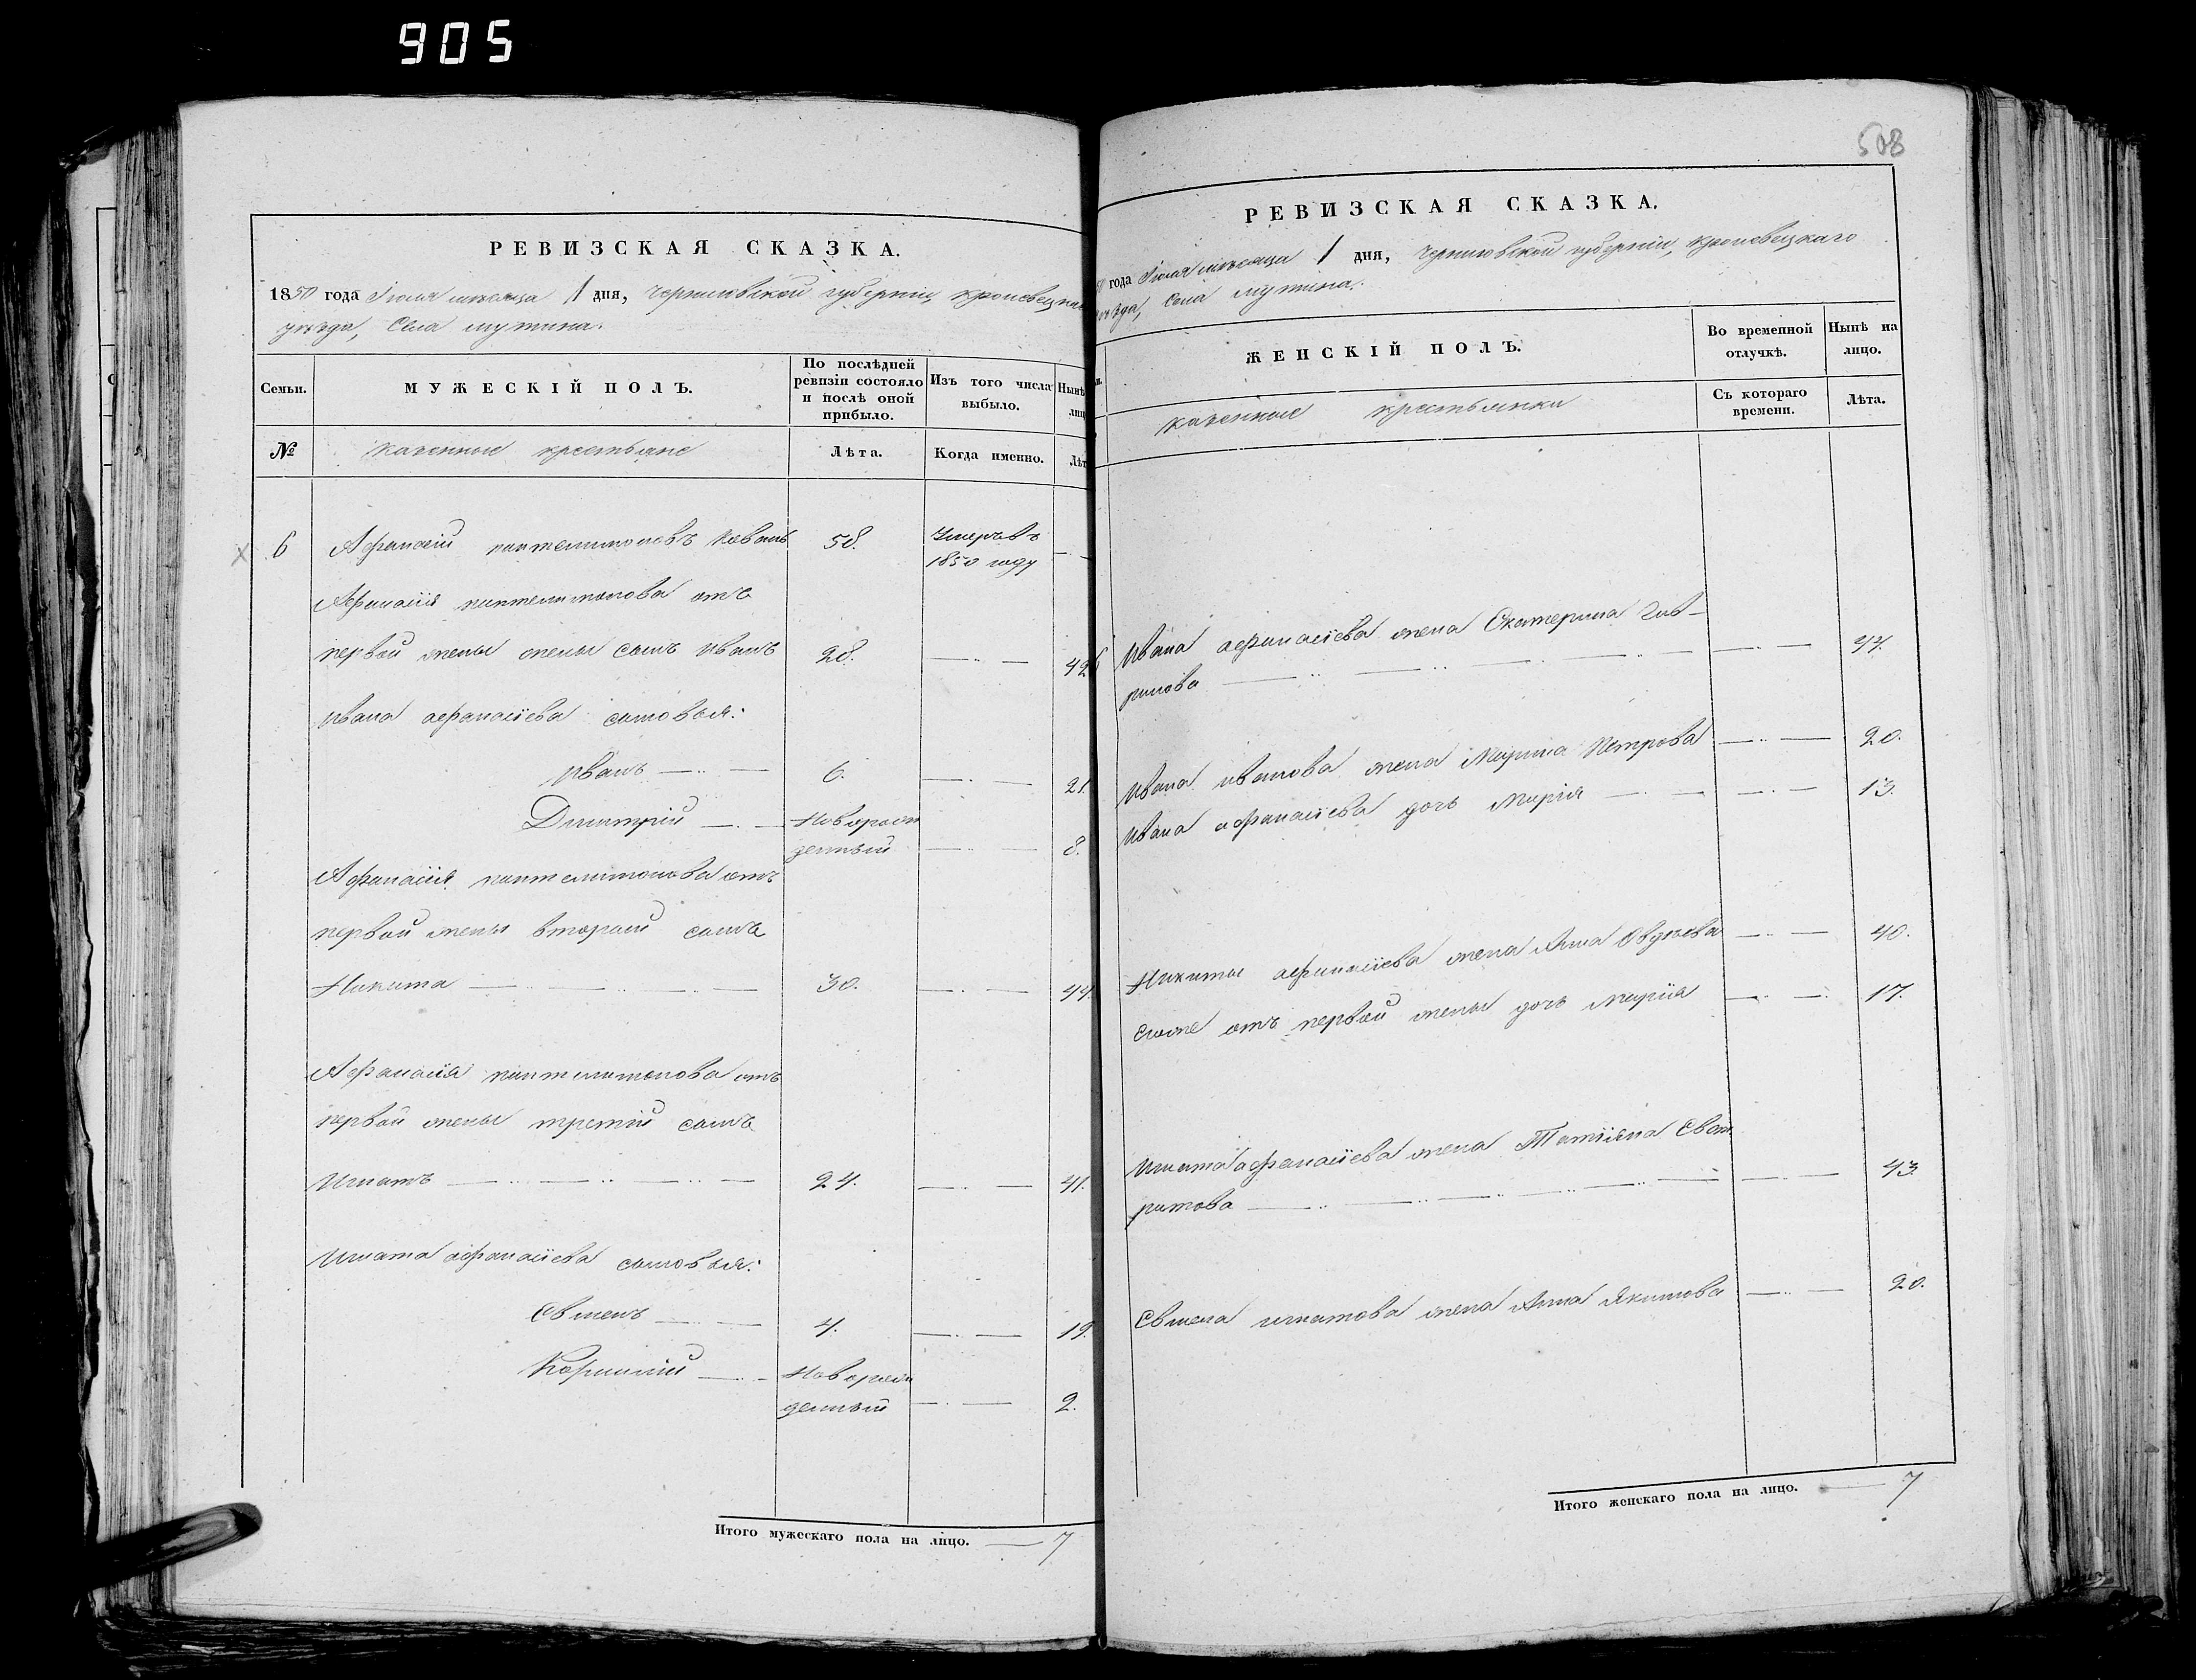 905
РЕВИЗСКАЯ СКАЗКА.
1850 года Іюля мѣсяца 1 дня, Черниговской губерніи, Кролевецкаго
уѣзда, Села Мутина.
Семьи.
МУЖЕСКІЙ ПОЛЪ.
По послѣдней
ревизіи состояло
и послѣ оной
прибыло.
Изъ того числа
выбыло.
Нынѣ
лиц
№
казенные крестьяне
Лѣта.
Когда именно.
Лѣт
6 Афанасій пантелимоновъ 58. Умеръ въ
1850 году
Афанасія пантелимонова отъ
первой жены жены сынъ Иванъ 28. 42
Ивана афанасіева сыновья:
Иванъ 6. 21.
Димитрій Новорож
денный 8.
Афанасія пантелимонова отъ
первой жены вторый сынъ
Никита 30. 44.
Афанасія пантелимонова отъ
первой жены третій сынъ
Игнатъ 24. 41.
Игната афанасіева сыновья:
Евменъ 4. 19.
Новорож
денный 2.
Итого мужескаго пола на лицо. 7
508
РЕВИЗСКАЯ СКАЗКА.
года Іюля мѣсяца 1 дня, Черниговской губерніи, Кролевецкаго
уѣзда, Села Мутина.
ЖЕНСКІЙ ПОЛЪ.
Во временной
отлучкѣ.
Нынѣ на
лицо.
казенные крестьянки
Съ котораго
времени.
Лѣта.
6 Ивана афанасіева жена Екатерина Гав-
рилова 44.
Ивана иванова жена Марина Петрова 20.
Ивана афанасіева дочь Марія 13.
Никиты афанасіева жена Анна 40.
егоже отъ первой жены дочь Марія 17.
Игната афанасіева жена Татіяна
43.
Евмена игнатова жена Анна Якимова 20.
Итого женскаго пола на лицо. 7